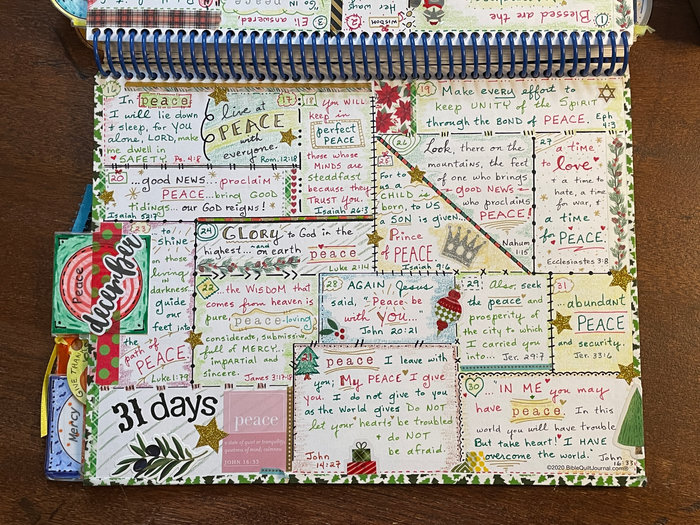 3
Eli
answered
2
wisdom
Her way
1
Blessed are the
16
In peace
I will lie down
& sleep, for YOU
alone, LORD, make
me dwell in
SAFETY. Ps. 4:8
17
live at
PEACE
with
everyone.
Rom. 12:18
18
YOU WILL
keep in
perfect
PEACE
those whose
MINDS are
STEDDFAST
because they
TRUST YOU.
Isaiah 26:3
19
Make every effort to
keep UNITY of the SPIRIT
through the BOND of PEACE. Eph
4:3
20
...good NEWS... proclaim
PEACE... bring GOOD
tidings... our GOD reigns!
Isaiah 52:7
25
For to
us a
CHILD is
born, to US a
SON is given...
Prince
of PEACE
Isaiah 9:6
26
Look, there on the
mountains, the feet
of one who brings
good NEWS
who proclaims
PEACE!
Nahum
1:15
27
a time
to love
& a time to
hate, a time
for war,
& a
time for
PEACE
Ecclesiastes 3:8
23
to
SHINE
on those
living
in
darkness...
guide
our
feet into
the
path of
PEACE
Luke 1:79
Peace
december
GIVE THANKS
Mercy
24
GLORY to God in the
highest... and on earth
peace
Luke 2:14
22
... the WISDOM that
comes from heaven is
pure, peace-loving
considerate, submissive,
full of MERCY...
impartial and
sincere.
James 3:17-18
28
AGAIN, Jesus
said, "Peace be
with YOU..."
John 20:21
29
Also, seek
the peace and
prosperity of
the city to which
I carried you
into... Jer. 29:7
31
abundant
PEACE
and security.
Jer. 33:6
31 days
peace
a state of quiet or tranquility,
quietness of mind; calmness
JOHN 16:33
peace I leave with
you; My PEACE I give
you. I do not give to you
as the world gives DO NOT
let your hearts be troubled
& do NOT
be afraid.
John
14:27
30
"IN ME you may
have peace. In this
world you will have trouble.
But take heart! I HAVE
overcome the world."
John
16:33
©2020.BibleQuiltJournal.com